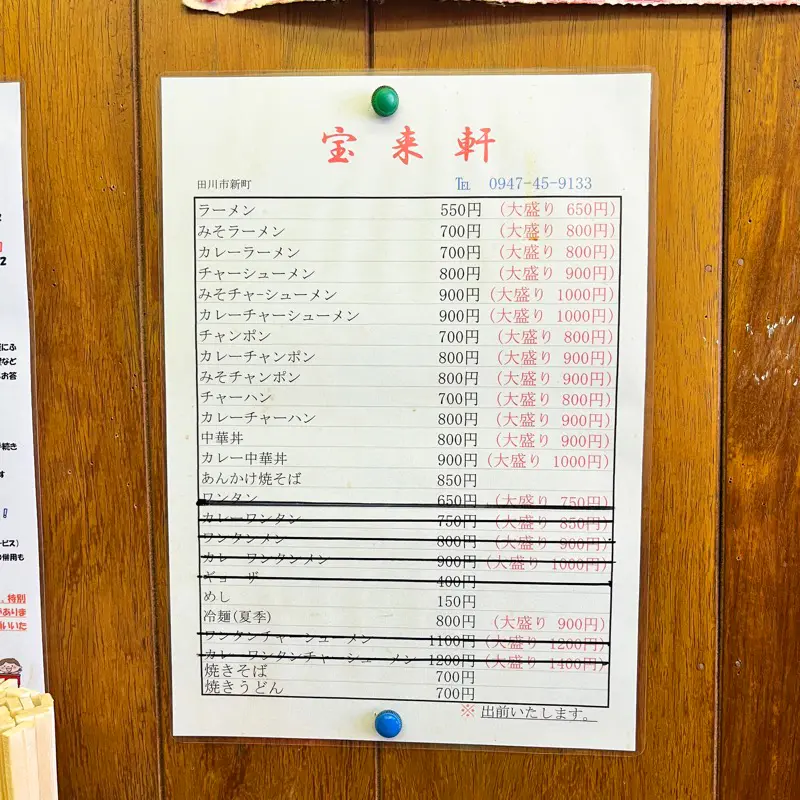 宝来軒
田川市新町 ℡ 0947-45-9133
ラーメン 550円 (大盛り 650円)
みそラーメン 700円 (大盛り 800円)
カレーラーメン 700円 (大盛り 800円)
チャーシューメン 800円 (大盛り 900円)
みそチャーシューメン 900円 (大盛り 1000円)
カレーチャーシューメン 900円 (大盛り 1000円)
チャンポン 700円 (大盛り 800円)
カレーチャンポン 800円 (大盛り 900円)
みそチャンポン 800円 (大盛り 900円)
チャーハン 700円 (大盛り 800円)
カレーチャーハン 800円 (大盛り 900円)
中華丼 800円 (大盛り 900円)
カレー中華丼 900円 (大盛り 1000円)
あんかけ焼そば 850円
ワンタン 650円 (大盛り 750円)
カレーワンタン 750円 (大盛り 850円)
ワンタンメン 800円 (大盛り 900円)
カレーワンタンメン 900円 (大盛り 1000円)
ギョーザ 400円
めし 150円
冷麺(夏季) 800円 (大盛り 900円)
ワンタンチャーシューメン 1100円 (大盛り 1200円)
カレーワンタンチャーシューメン 1200円 (大盛り 1400円)
焼きそば 700円
焼きうどん 700円
※ 出前いたします。
2
にふ
など
お答
手続き
す
!
ービス)
の併用も
、特別
がありま
願いいた